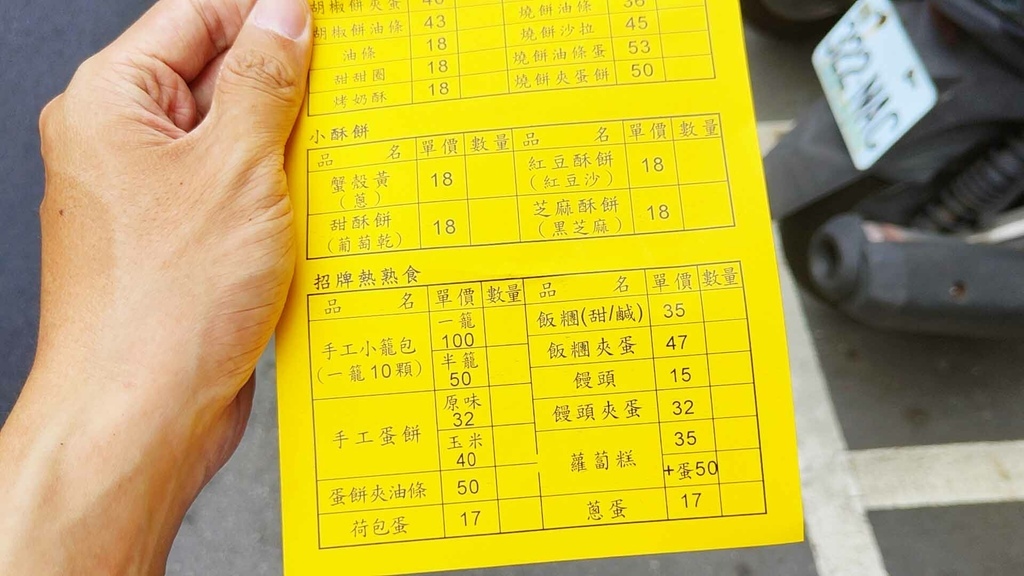 胡椒餅夾蛋 48
胡椒餅油條 43 燒餅油條 36
油條 18 燒餅沙拉 45
甜甜圈 18 燒餅油條蛋 53
烤奶酥 18 燒餅夾蛋餅 50
小酥餅
品 名 單價 數量 品 名 單價 數量
蟹殼黃 18 紅豆酥餅 18
(蔥) (紅豆沙)
甜酥餅 18 芝麻酥餅 18
(葡萄乾) (黑芝麻)
招牌熱熟食
品 名 單價 數量 品 名 單價 數量
手工小籠包 一籠 100 飯糰(甜/鹹) 35
(一籠10顆) 半籠 50 飯糰夾蛋 47
饅頭 15
手工蛋餅 原味 32 饅頭夾蛋 32
玉米 40 蘿蔔糕 35
+蛋50
蛋餅夾油條 50
荷包蛋 17 蔥蛋 17
322 MAC